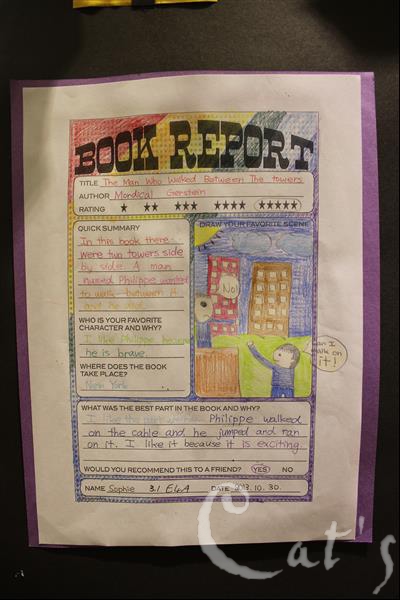 BOOK REPORT
TITLE The Man Who Walked Between The towers
AUTHOR Mordical Gerstein
RATING
QUICK SUMMARY
In this book there
were two towers side
by side. A man
named Philippe wanted
to walk between it
and he did.
WHO IS YOUR FAVORITE
CHARACTER AND WHY?
I like Philippe because
he is brave.
WHERE DOES THE BOOK
TAKE PLACE?
New York
DRAW YOUR FAVORITE SCENE
No!
can I
walk on
it!
WHAT WAS THE BEST PART IN THE BOOK AND WHY?
I like the part when Philippe walked
on the cable and he jumped and ran
on it. I like it because it is exciting.
WOULD YOU RECOMMEND THIS TO A FRIEND? YES NO
NAME Sophie 3.1 E4A DATE 2013.10.30.
Cat's